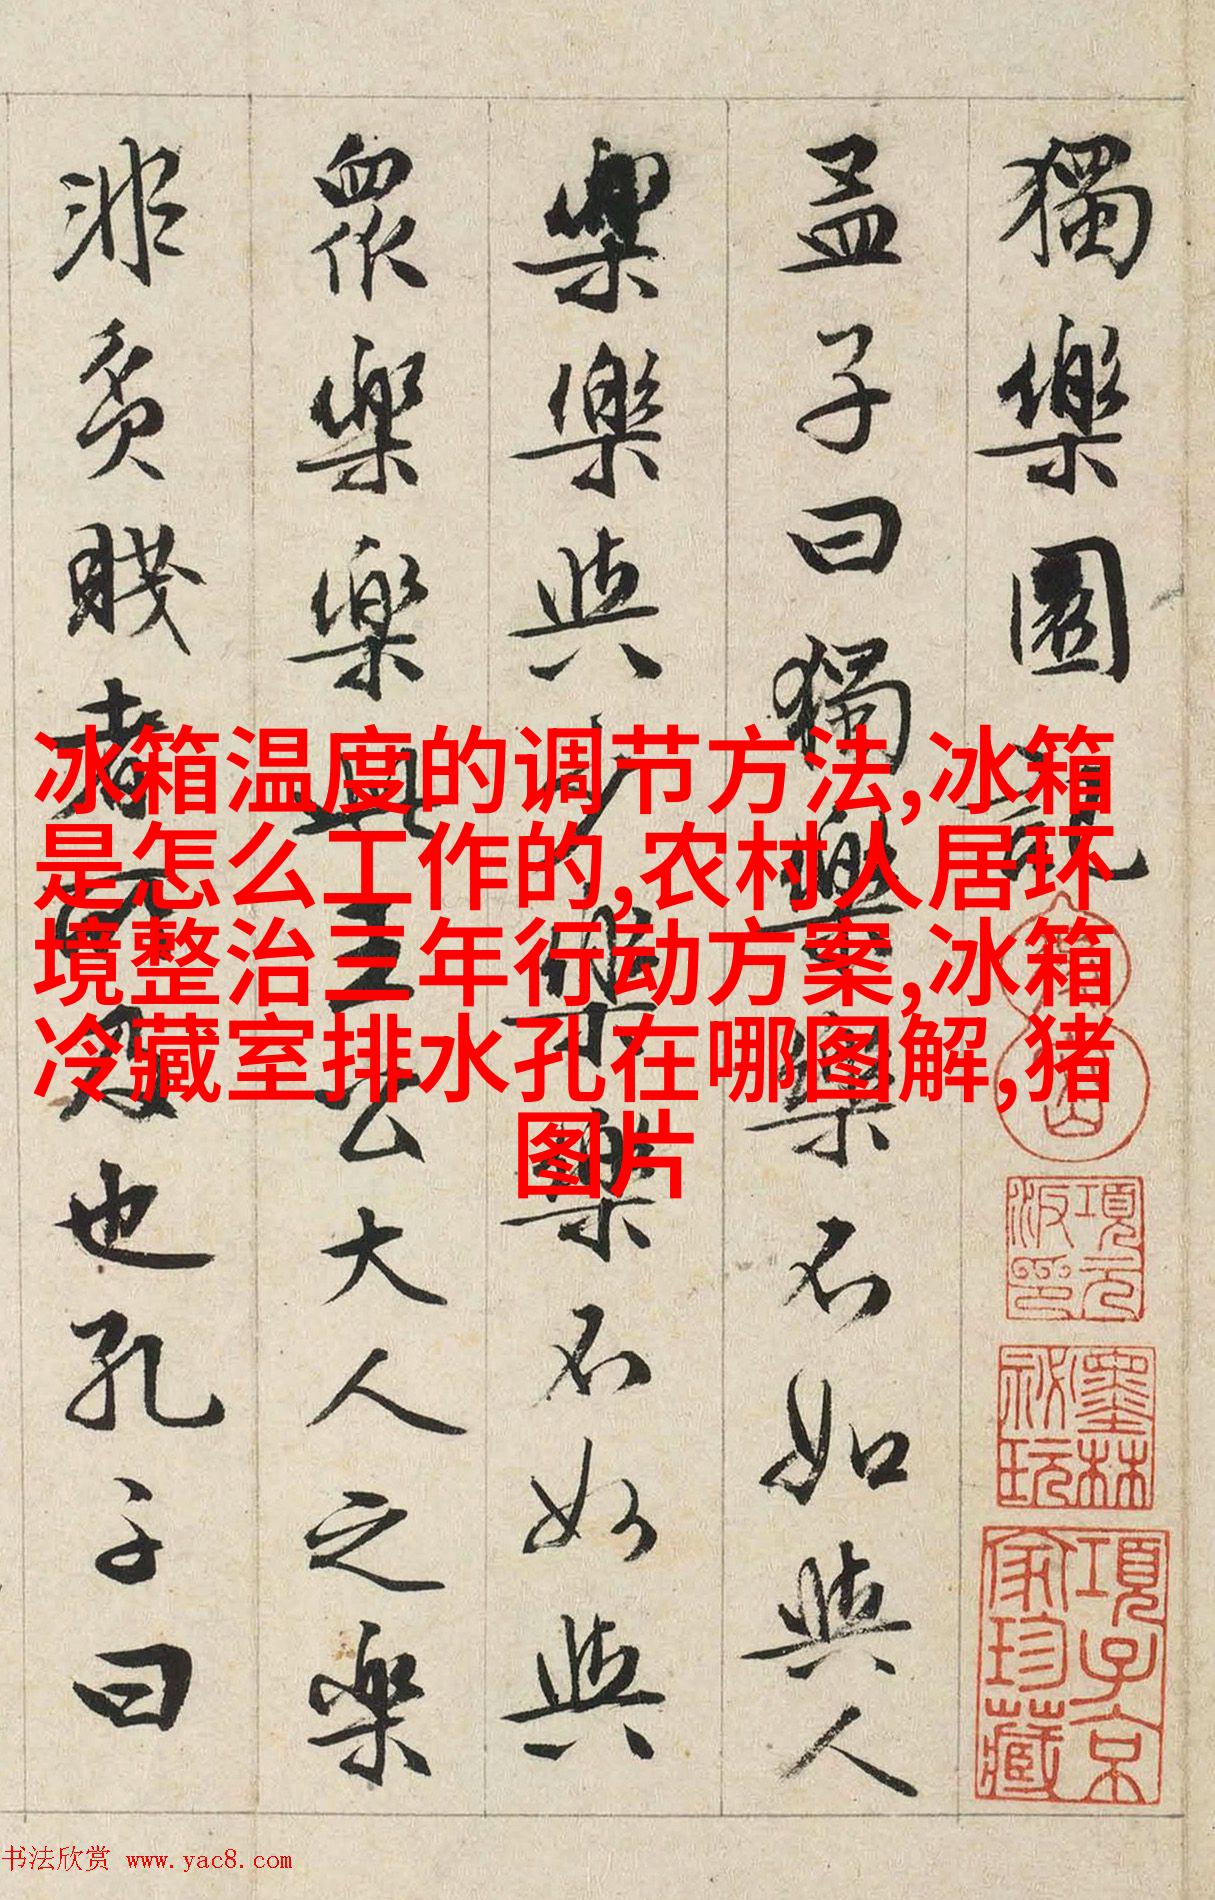 獨樂園記
孟子曰獨樂樂不如與人
樂樂與少樂樂不如與
眾樂樂王公大人之樂
非貧賤者所及也孔子曰
冰箱温度的调节方法,冰箱
是怎么工作的,农村人居环
境整治三年行动方案,冰箱
冷藏室排水孔在哪图解,猪
图片
項元汴印
墨林祕玩
項子京家珍藏
书法欣赏 www.yac8.com